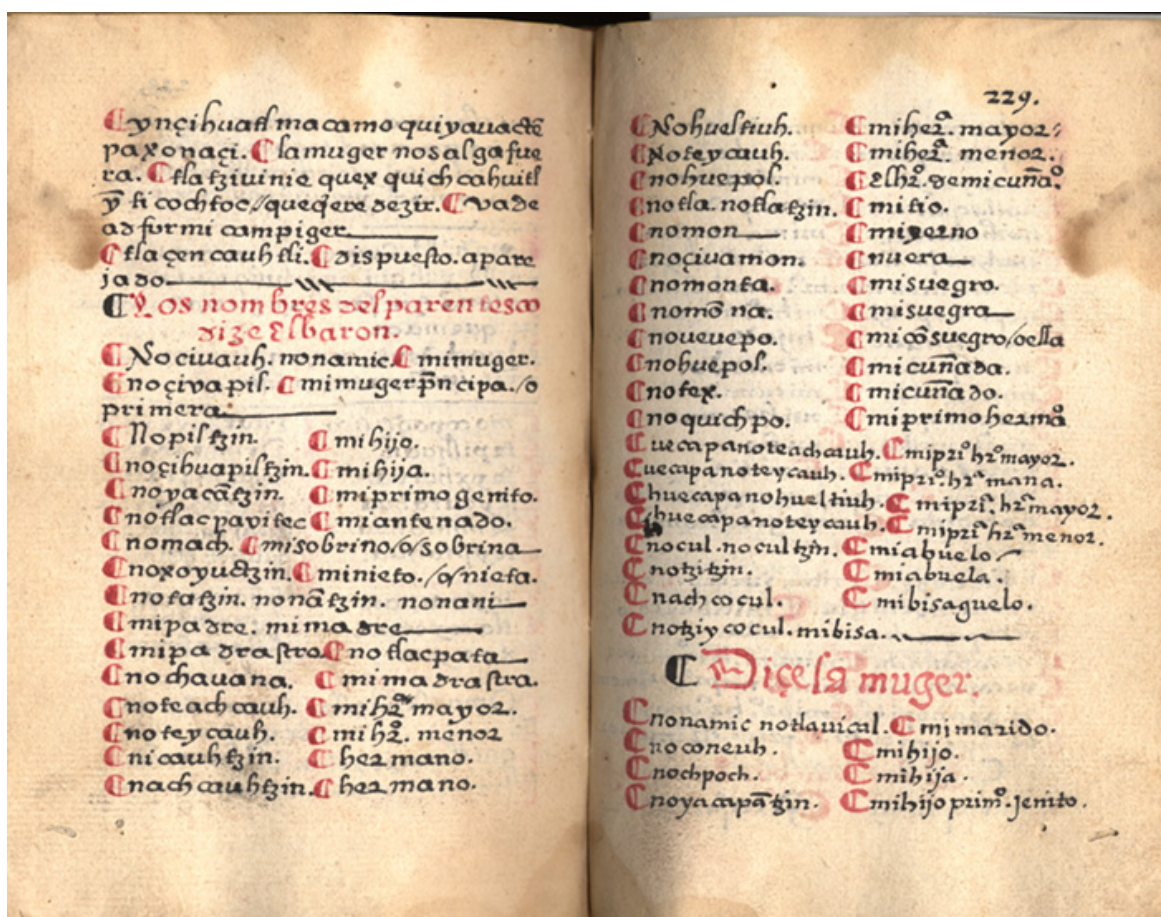 ynçihuatl macamo quiyauactē
paxonaçi. la muger no salga fue
ra. tlatzivinie quexquich cahuitl
ȳ ti cochtoc/queqere dezir. vade
ad formicam piger
tlaçencauhtli. dispuesto. apare
jado
Los nombres del parentesco
dize El baron.
Nociuauh. nonamic mi muger.
noçivapil. mi muger prīncipa./o
primera
Nopiltzin. mi hijo.
noçihuapiltzin. mi hija.
noyacātzin. mi primogenito.
notlacpavitec mi antenado.
nomach. mi sobrino/o/sobrina
noxoyuctzin. mi nieto./o/nieta.
notatzin. nonātzin. nonani
mi padre. mi madre
mi padrastro notlacpata
nochauana. mi madrastra.
noteachcauh. mi hrº mayor.
noteycauh. mi hrº. menor
nicauhtzin. hermano.
nachcauhtzin. hermano.
229.
Nohueltiuh. mi herª. mayor
Noteycauh. mi herª. menor.
nohuepol. El hrº. de mi cuñaº.
notla. notlatzin. mi tio.
nomon mi yerno
noçivamon. nuera
nomonta. mi suegro.
nomōna. mi suegra
noueuepo. mi cōsuegro/o ella
nohuepol. mi cuñada.
notex. mi cuñado.
noquichpo. mi primo hermº
uecapanoteachcauh. mi priº hrº mayor.
uecapanoteycauh. mi priº. hrª mana.
huecapanohueltiuh. mi priª. hrª mayor.
huecapanoteycauh. mi priª hrª menor.
nocul. nocultzin. mi abuelo
notzitzin. mi abuela.
nachcocul. mi bisaguelo.
notziycocul. mi bisa.
Diçe la muger.
nonamic notlauical. mi marido.
noconeuh. mi hijo.
nochpoch. mi hija.
noyacapātzin. mi hijo primº. jenito.